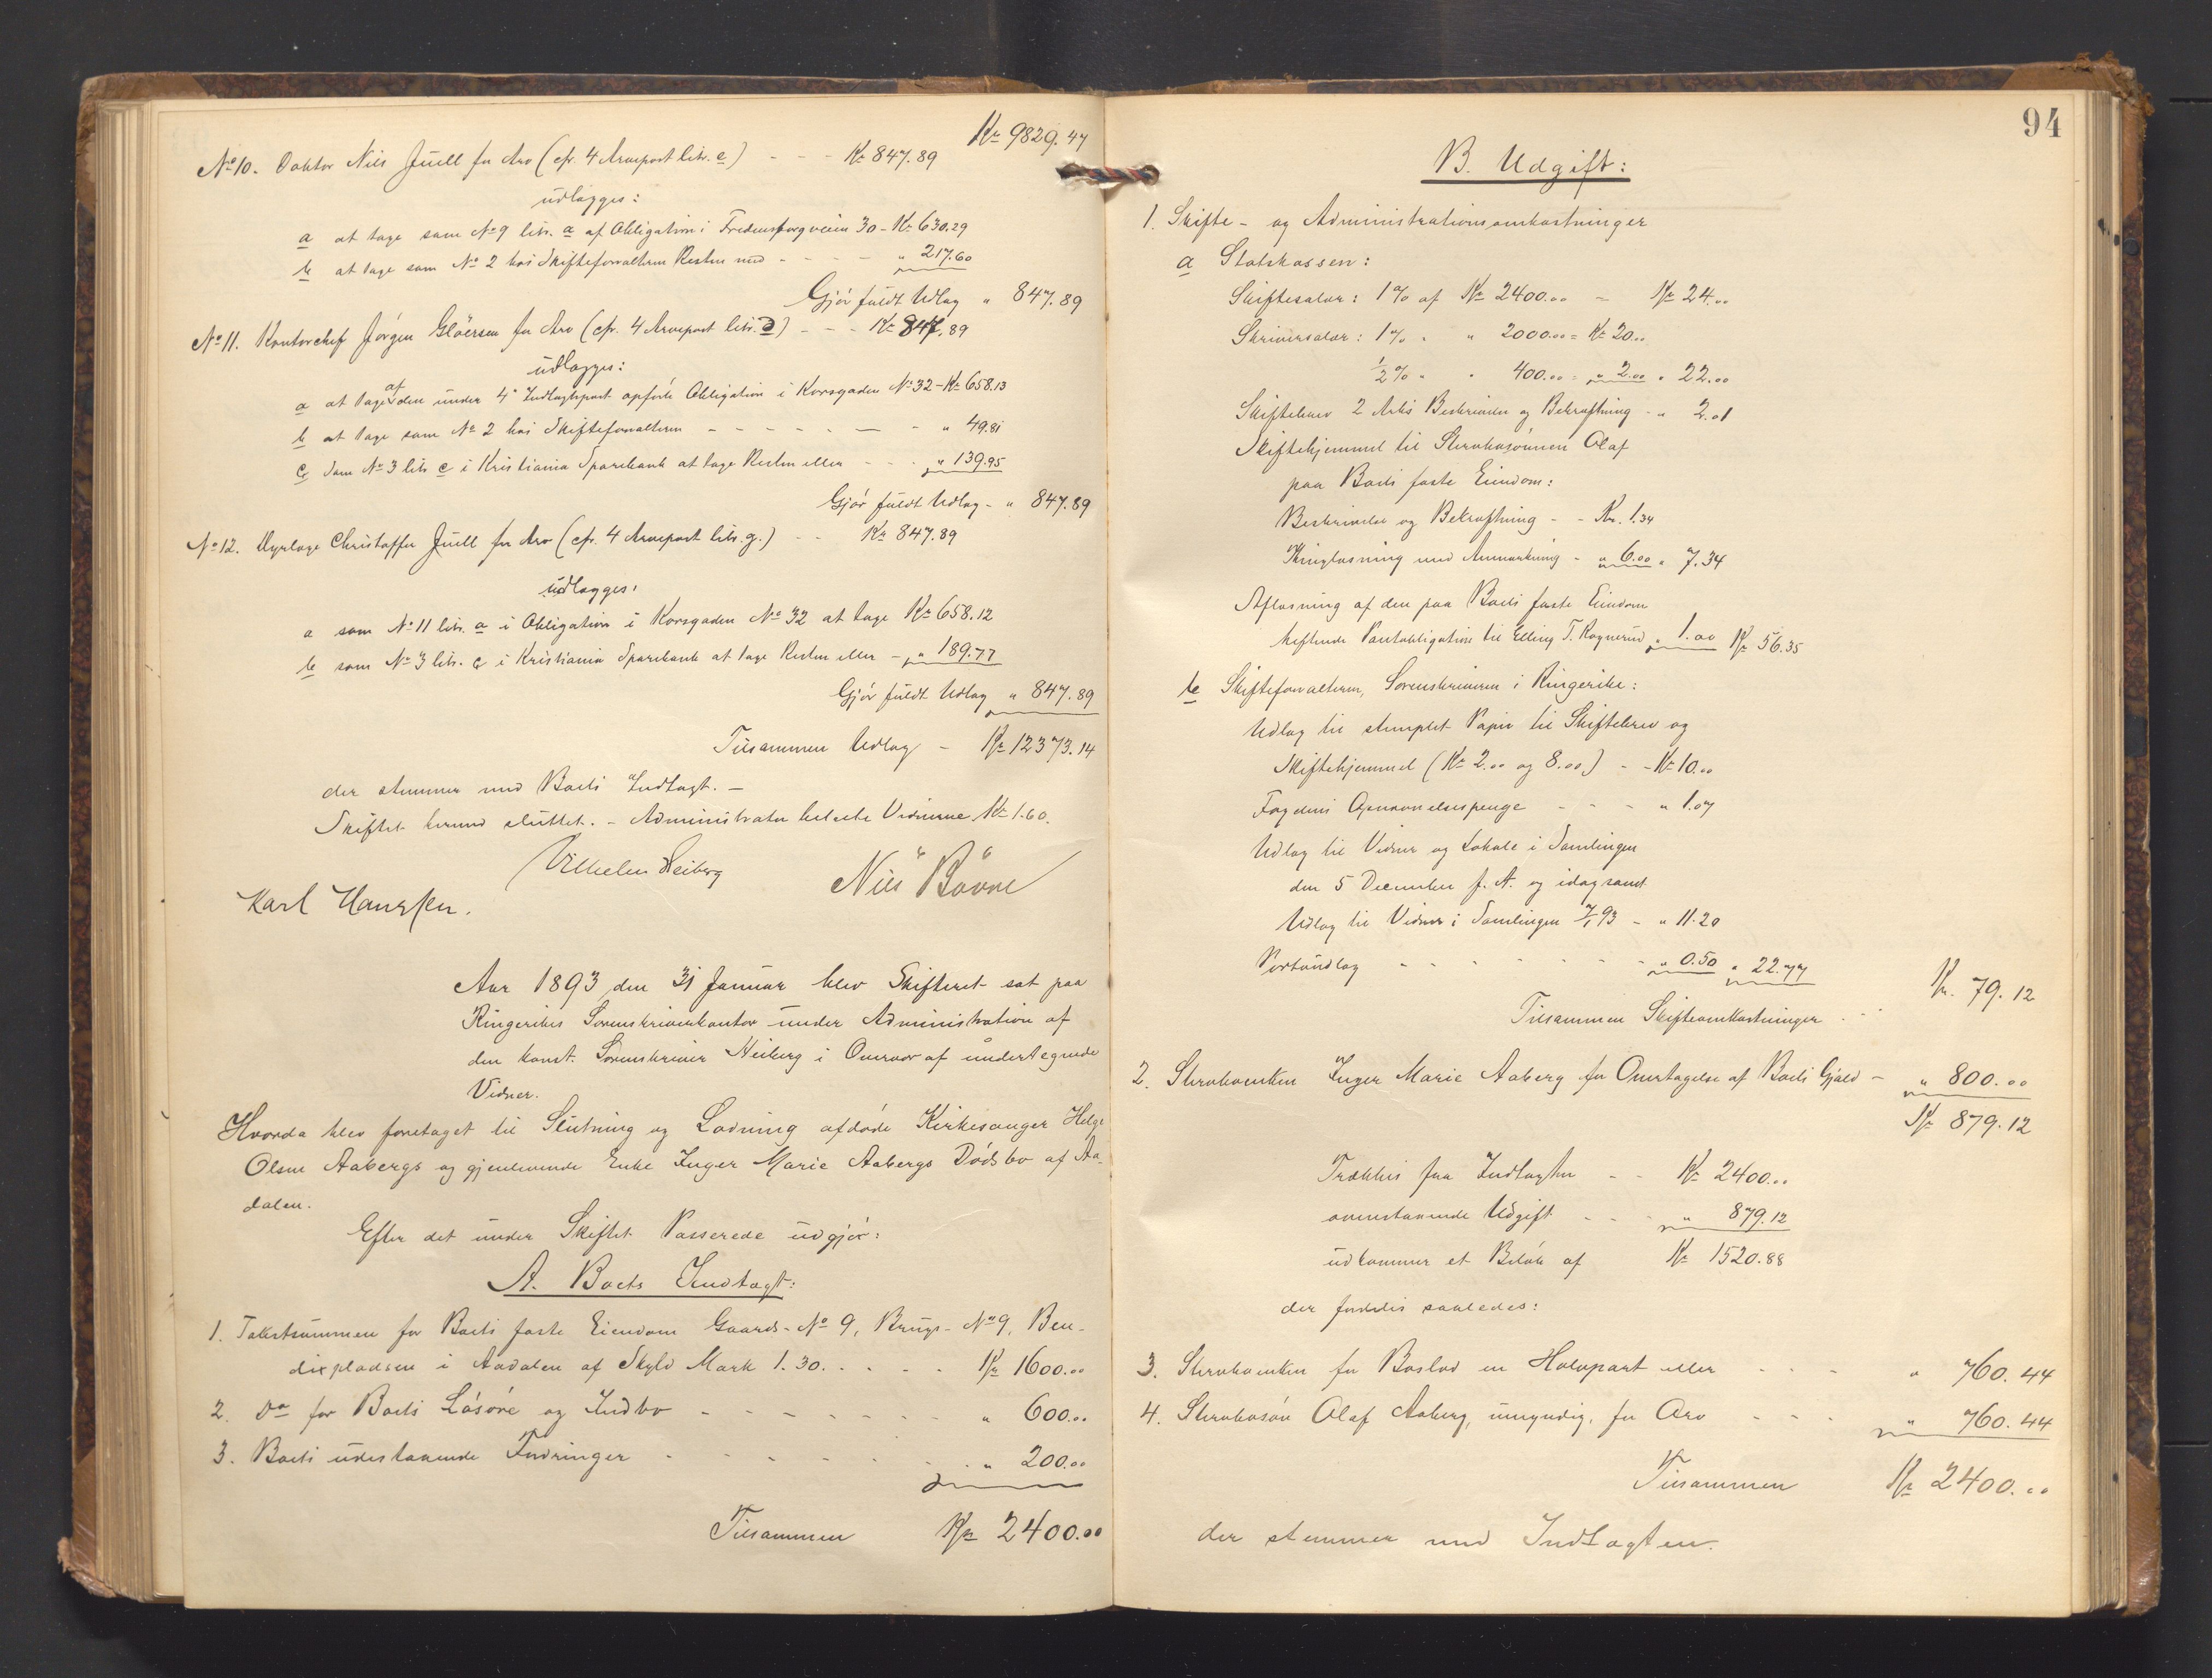 Kr 9829.47
No 10. Doktor Nils Juell for Arv (cfr. 4 Arvepost litr. e) - - - Kr 847.89
udlægges:
a at tage som No 9 litr. a af Obligation i Fredensborgveien 30 - Kr 630.29
b at tage som No 2 hos Skifteforvalteren Resten med - - - - " 217.60
Gjør fuldt Udlæg " 847.89
No 11. Kontorchef Jørgen Gløersen for Arv (cfr. 4 Arvepost litr. d) - - - Kr 847.89
udlægges:
a at tage af den under 4de Indtægtspost opførte Obligation i Korsgaden No 32 - Kr 658.13
b at tage som No 2 hos Skifteforvalteren - - - - - - - " 49.81
c som No 3 litr c i Kristiania Sparebank at tage Resten eller - - - " 139.95
Gjør fuldt Udlæg - " 847.89
No 12. Christoffer Juell for Arv (cfr. 4 Arvepost litr. g.) - - Kr 847.89
udlægges:
a som No 11 litr. a i Obligation i Korsgaden No 32 at tage Kr 658.12
b som No 3 litr. c i Kristiania Sparebank at tage Resten eller - " 189.77
Gjør fuldt Udlæg " 847.89
Tilsammen Udlæg - Kr 12373.14
der stemmer med Boets Indtægt. -
Skiftet hermed sluttet. - Administrator betalte Vidnerne Kr 1.60.
Vilhelm Heiberg
Karl Hanssen. Nils Bövre
Aar 1893 den 31 Januar blev Skifteret sat paa
Ringerikes Sorenskriverkontor under Administration af
den konst. Sorenskriver Heiberg i Overvær af undertegnede
Vidner.
Hvorda blev foretaget til Slutning og Lodning afdøde Kirkesanger Helge
Olsen Aabergs og gjenlevende Enke Inger Marie Aabergs Dødsbo af Aa-
dalen.
Efter det under Skiftet Passerede udgjør:
A. Boets Indtægt:
1. Takstsummen for Boets faste Eiendom Gaards-No 9, Brugs-No 9, Ben-
dixpladsen i Aadalen af Skyld Mark 1.30. - - - - Kr 1600.00
2. Do for Boets Løsøre og Indbo - - - - - - - " 600.00
3. Boets udestaaende Fordringer - - - - - - - " 200.00
Tilsammen Kr 2400.00
94
B. Udgift:
1. Skifte- og Administrationsomkostninger
a Statskassen:
Skiftesalær: 1% af Kr 2400.00 = Kr 24.00
Skriversalær: 1% " " 2000.00 = Kr 20.00
1/2% " " 400.00 = " 2.00 " 22.00
Skiftebrev 2 Arks Beskrivelse og Bekræftning - " 2.01
Skiftehjemmel til Stervbosønnen Olaf
paa Boets faste Eiendom:
Beskrivelse og Bekræftning - - Kr. 1.34
Thinglæsning med Anmærkning - " 6.00 " 7.34
Aflæsning af den paa Boets faste Eiendom
heftende Pantobligation til Elling T. Rognerud " 1.00 Kr 56.35
b Skifteforvalteren, Sorenskriveren i Ringerike:
Udlæg til stemplet Papir til Skiftebrev og
Skiftehjemmel (Kr 2.00 og 8.00) - - Kr 10.00
Fogdens Opnævnelsespenge - - - " 1.07
Udlæg til Vidner og Lokale i Samlingen
den 5 December f. A. og idag samt
Udlæg til Vidner i Samlingen 7/1 93 - " 11.20
Portoudlæg - - - - - - - " 0.50 " 22.77
Tilsammen Skifteomkostninger - - - Kr. 79.12
2. Stervboenken Inger Marie Aaberg for Overtagelse af Boets Gjæld - " 800.00
Kr 879.12
Trækkes fra Indtægten - - Kr 2400.00
ovenstaaende Udgift - - - " 879.12
udkommer et Beløb af Kr 1520.88
der fordeles saaledes:
3. Stervboenken for Boslod en Halvpart eller - - - " 760.44
4. Stervbosøn Olaf Aaberg, umyndig, for Arv - - - " 760.44
Tilsammen Kr 2400.00
der stemmer med Indtægten.